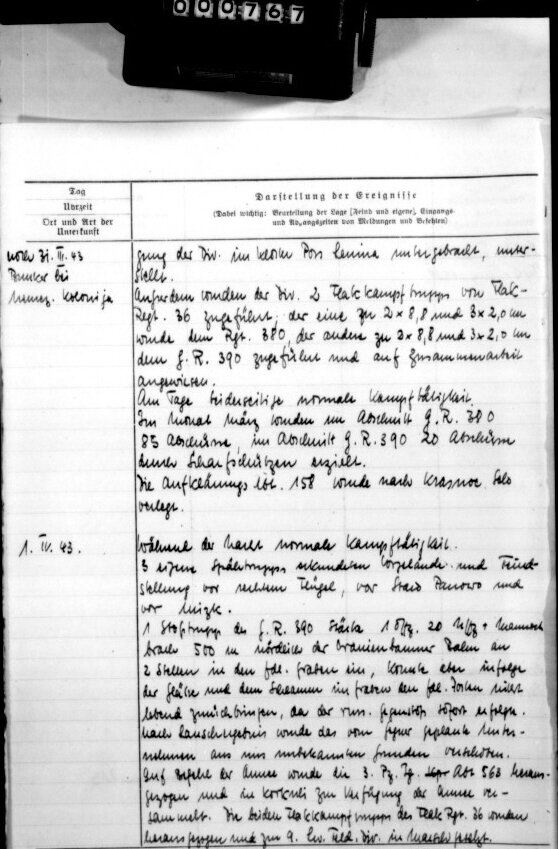 000767
Tag
Uhrzeit
Ort und Art der
Unterkunft
Darstellung der Ereignisse
(Dabei wichtig: Beurteilung der Lage [Feind und eigene], Eingangs-
und Abgangszeiten von Meldungen und Befehlen)
noch 31. III. 43
Bunker bei
Kolonija
gung der Div. im untergebracht, unter-
stellt.
Ausserdem wurden der Div. 2 Flakkampftrupps vom Flak-
Regt. 36 zugeführt; der eine zu 2 x 8,8 und 3 x 2,0 cm
wurde dem Rgt. 380, der andere zu 2 x 8,8 und 3 x 2,0 cm
dem G.R. 390 zugeführt und auf Zusammenarbeit
angewiesen.
Am Tage beiderseitige normale Kampftätigkeit.
Im Monat März wurden im Abschnitt G.R. 380
85 Abschüsse, im Abschnitt G.R. 390 20 Abschüsse
durch Scharfschützen erzielt.
Die Aufklärungs Abt. 158 wurde nach Krasnoe Selo
verlegt.
1. IV. 43.
Während der Nacht normale Kampftätigkeit.
3 eigene Spähtrupps erkundeten Vorgelände und Feind-
stellung vor rechtem Flügel, vor Staro Panowo und
vor Urizk.
1 Stosstrupp des G.R. 390 Stärke 1 Offz. 20 Uffz + Mannsch
brach 500 m nördlich der Oranienbaumer Bahn an
2 Stellen in den fdl. Graben ein, konnte aber infolge
der und dem Schlamm im Graben den fdl. Posten nicht
lebend zurückbringen, da der russ. Gegenstoß sofort erfolgte.
Nach wurde das vom geplante Unter-
nehmen aus uns unbekannten Gründen verschoben.
Auf Befehl der Armee wurde die 3. Pz. Jg. Abt 563 heraus-
gezogen und in zur Verfügung der Armee ver-
sammelt. Die beiden Flakkampftrupps des Flak Rgt. 36 wurden
herausgezogen und zur 9. Lw. Feld. Div. in Marsch gesetzt.